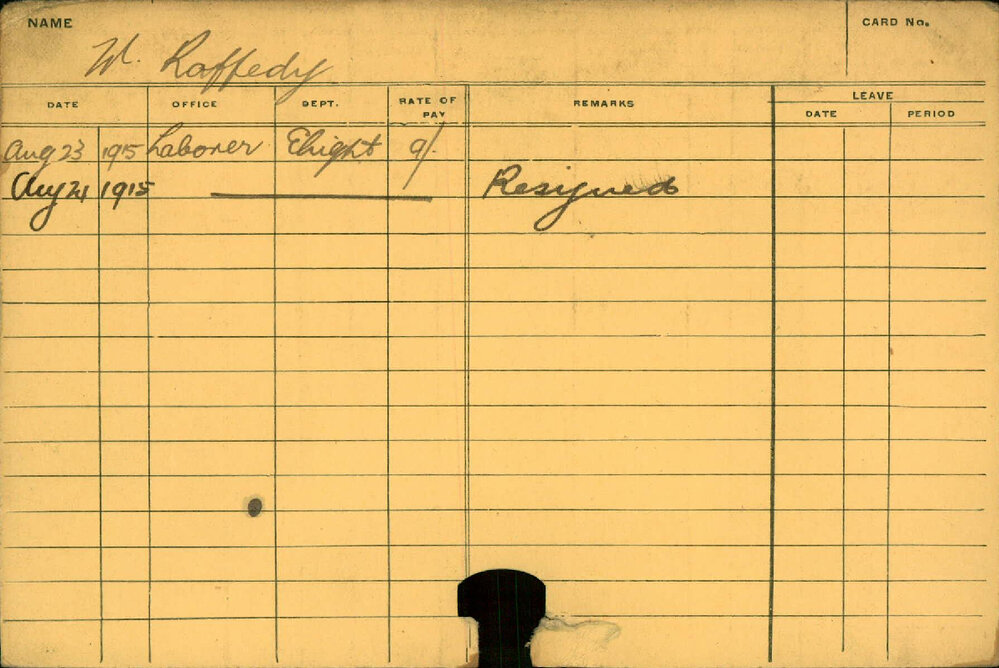 NAME
CARD No.
W. Raffedy
DATE OFFICE DEPT. RATE OF PAY REMARKS LEAVE
DATE PERIOD
Aug 23 1915 Laborer Elight 9/.
Aug 21 1915 Resigned